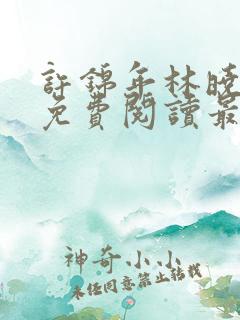 許錦年林曉
免費閱讀最
神奇小小
未经同意禁止转载